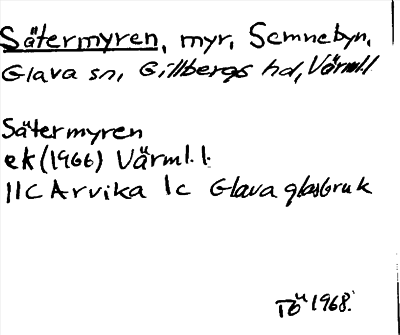 Sätermyren, myr, Semnebyn,
Glava sn, Gillbergs hd, Värml.
Sätermyren
ek (1966) Värml. l.
11C Arvika 1c Glava glasbruk
1968.